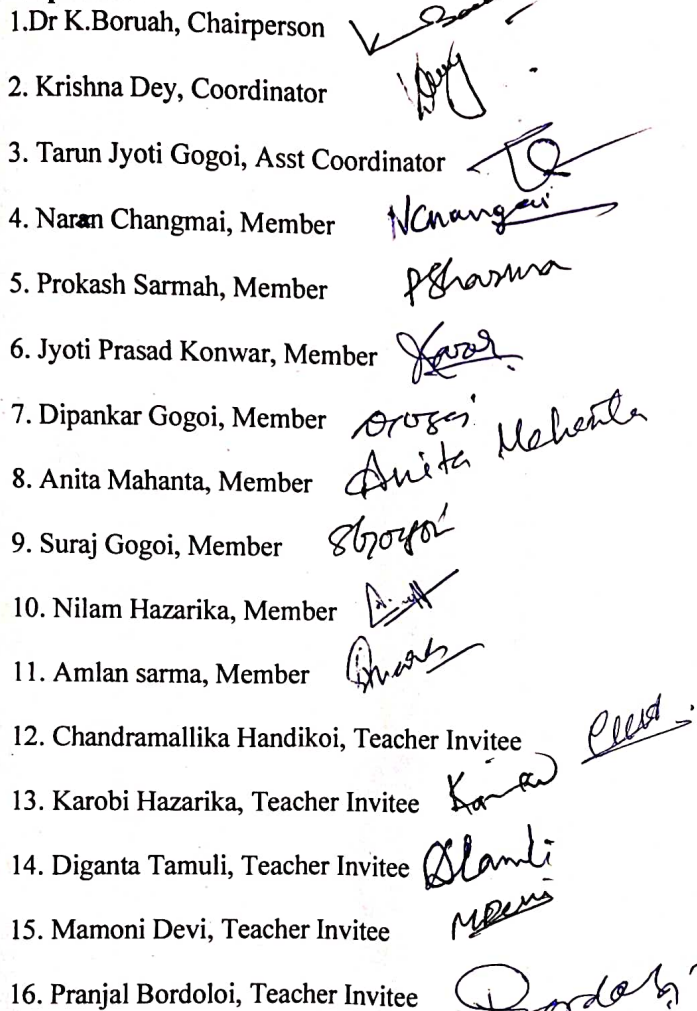 1.Dr K.Boruah, Chairperson
2. Krishna Dey, Coordinator
3. Tarun Jyoti Gogoi, Asst Coordinator
4. Naran Changmai, Member NChangmai
5. Prokash Sarmah, Member PSharma
6. Jyoti Prasad Konwar, Member
7. Dipankar Gogoi, Member
8. Anita Mahanta, Member Anita Mahanta
9. Suraj Gogoi, Member SGogoi
10. Nilam Hazarika, Member
11. Amlan sarma, Member
12. Chandramallika Handikoi, Teacher Invitee
13. Karobi Hazarika, Teacher Invitee
14. Diganta Tamuli, Teacher Invitee
15. Mamoni Devi, Teacher Invitee MDevi
16. Pranjal Bordoloi, Teacher Invitee